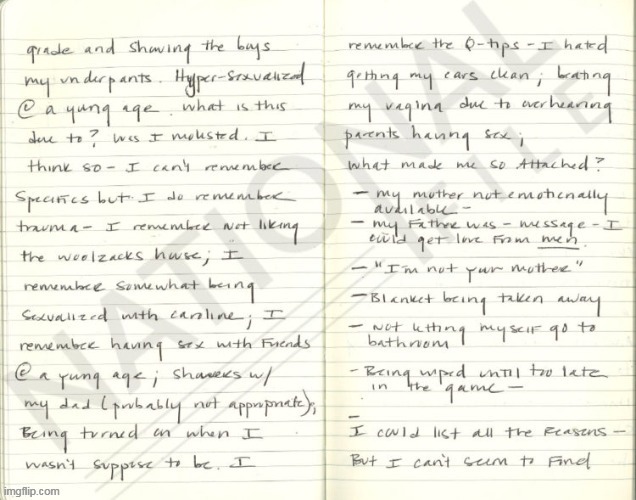 grade and showing the boys
my underpants. Hyper-sexualized
@ a young age. What is this
due to? Was I molested. I
think so - I can't remember
specifics but I do remember
trauma - I remember not liking
the woolzacks house; I
remember somewhat being
sexualized with caroline; I
remember having sex with friends
@ a young age; showers w/
my dad (probably not appropriate);
Being turned on when I
wasn't suppose to be. I
remember the Q-tips - I hated
getting my ears clean; beating
my vagina due to overhearing
parents having sex;
what made me so attached?
- my mother not emotionally
available -
- my Father was - message - I
could get love from men
- "I'm not your mother"
- Blanket being taken away
- Not letting myself go to
bathroom
- Being wiped until too late
in the game -
-
I could list all the reasons -
But I can't seem to find
NATIONAL FILE
imgflip.com